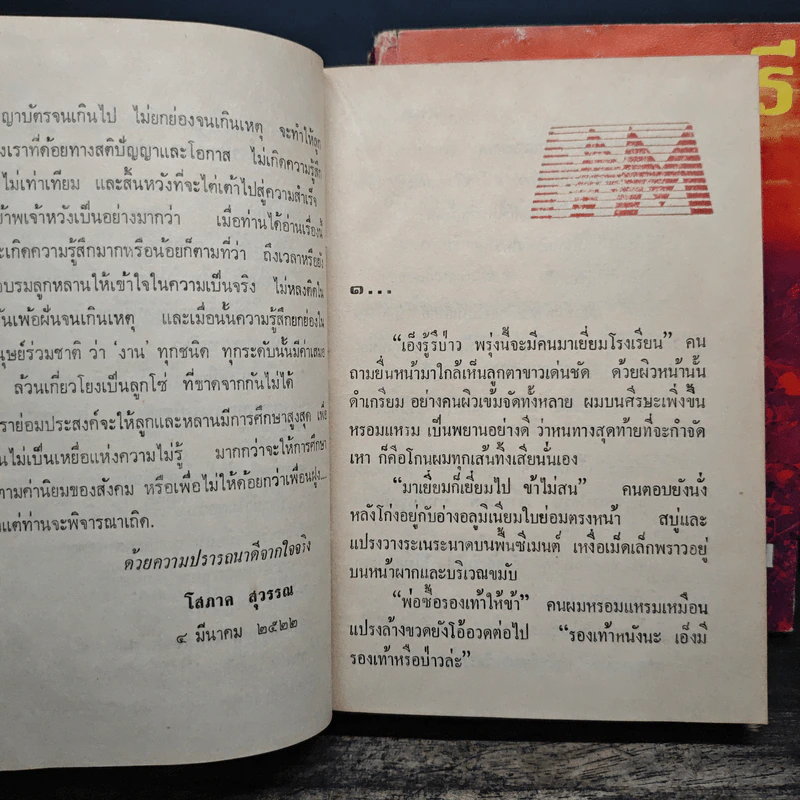 ญาบัตรจนเกินไป ไม่ยกย่องจนเกินเหตุ จะทำให้ลูก
งเราที่ด้อยทางสติปัญญาและโอกาส ไม่เกิดความรู้สึก
ไม่เท่าเทียม และสิ้นหวังที่จะไต่เต้าไปสู่ความสำเร็จ
ข้าพเจ้าหวังเป็นอย่างมากว่า เมื่อท่านได้อ่านเรื่องนี้
ะเกิดความรู้สึกมากหรือน้อยก็ตามที่ว่า ถึงเวลาหรือยัง
อบรมลูกหลานให้เข้าใจในความเป็นจริง ไม่หลงติดใน
ันเพ้อฝันจนเกินเหตุ และเมื่อนั้นความรู้สึกยกย่องใน
นุษย์ร่วมชาติ ว่า 'งาน' ทุกชนิด ทุกระดับนั้นมีค่าเสมอ
ล้วนเกี่ยวโยงเป็นลูกโซ่ ที่ขาดจากกันไม่ได้
ราย่อมประสงค์จะให้ลูกและหลานมีการศึกษาสูงสุด เพื่อ
นไม่เป็นเหยื่อแห่งความไม่รู้ มากกว่าจะให้การศึกษา
ตามค่านิยมของสังคม หรือเพื่อไม่ให้ด้อยกว่าเพื่อนฝูง...
แต่ท่านจะพิจารณาเถิด.
ด้วยความปรารถนาดีจากใจจริง
โสภาค สุวรรณ
๔ มีนาคม ๒๕๒๒
๑...
“เอ็งรู้รึป่าว พรุ่งนี้จะมีคนมาเยี่ยมโรงเรียน” คน
ถามยื่นหน้ามาใกล้เห็นลูกตาขาวเด่นชัด ด้วยผิวหน้านั้น
ดำเกรียม อย่างคนผิวเข้มจัดทั้งหลาย ผมบนศีรษะเพิ่งขึ้น
หรอมแหรม เป็นพยานอย่างดี ว่าหนทางสุดท้ายที่จะกำจัด
เหา ก็คือโกนผมทุกเส้นทิ้งเสียนั่นเอง
“มาเยี่ยมก็เยี่ยมไป ข้าไม่สน” คนตอบยังนั่ง
หลังโก่งอยู่กับอ่างอลูมิเนียมใบย่อมตรงหน้า สบู่และ
แปรงวางระเนระนาดบนพื้นซีเมนต์ เหงื่อเม็ดเล็กพราวอยู่
บนหน้าผากและบริเวณขมับ
“พ่อซื้อรองเท้าให้ข้า” คนผมหรอมแหรมเหมือน
แปรงล้างขวดยังโอ้อวดต่อไป “รองเท้าหนังนะ เอ็งมี
รองเท้าหรือป่าวล่ะ”
รี